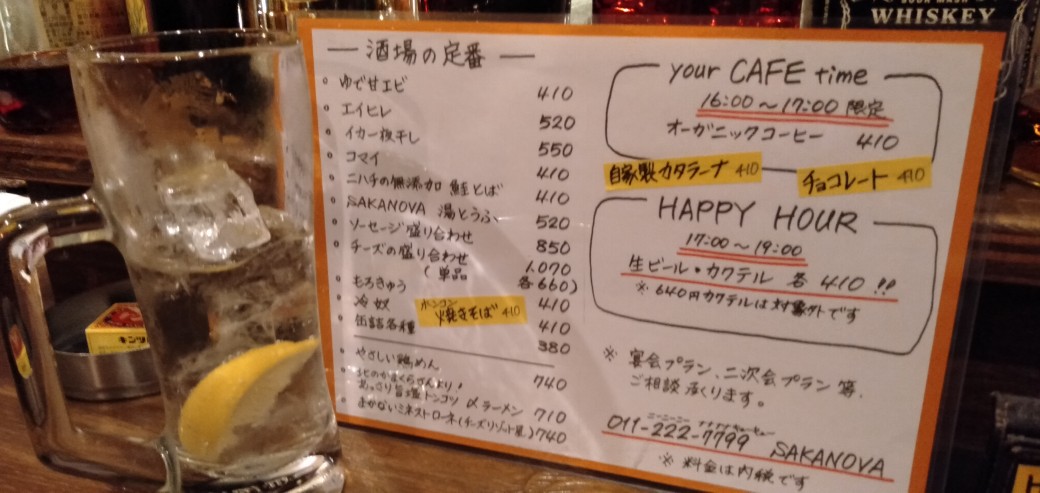 WHISKEY
― 酒場の定番 ―
。ゆで甘エビ 410
。エイヒレ 520
。イカ一夜干し 550
。コマイ 410
。ニハチの無添加 鮭とば 410
。SAKANOVA 湯とうふ 520
。ソーセージ盛り合わせ 850
。チーズの盛り合わせ 1,070
(単品 各660)
。もろきゅう 410
。冷奴 410
ホンコン
焼きそば 410
。缶詰各種 380
。やさしい鶏めん 740
。北のかまくらさんより!
あっさり旨塩トンコツ 〆ラーメン 710
。まかないミネストローネ(チーズリゾット風) 740
your CAFE time
16:00~17:00 限定
オーガニックコーヒー 410
自家製カタラーナ 410
チョコレート 410
HAPPY HOUR
17:00~19:00
生ビール・カクテル 各 410!!
※640円カクテルは対象外です
※ 宴会プラン、二次会プラン等、
ご相談承ります。
011-222-7799 SAKANOVA
※ 料金は内税です